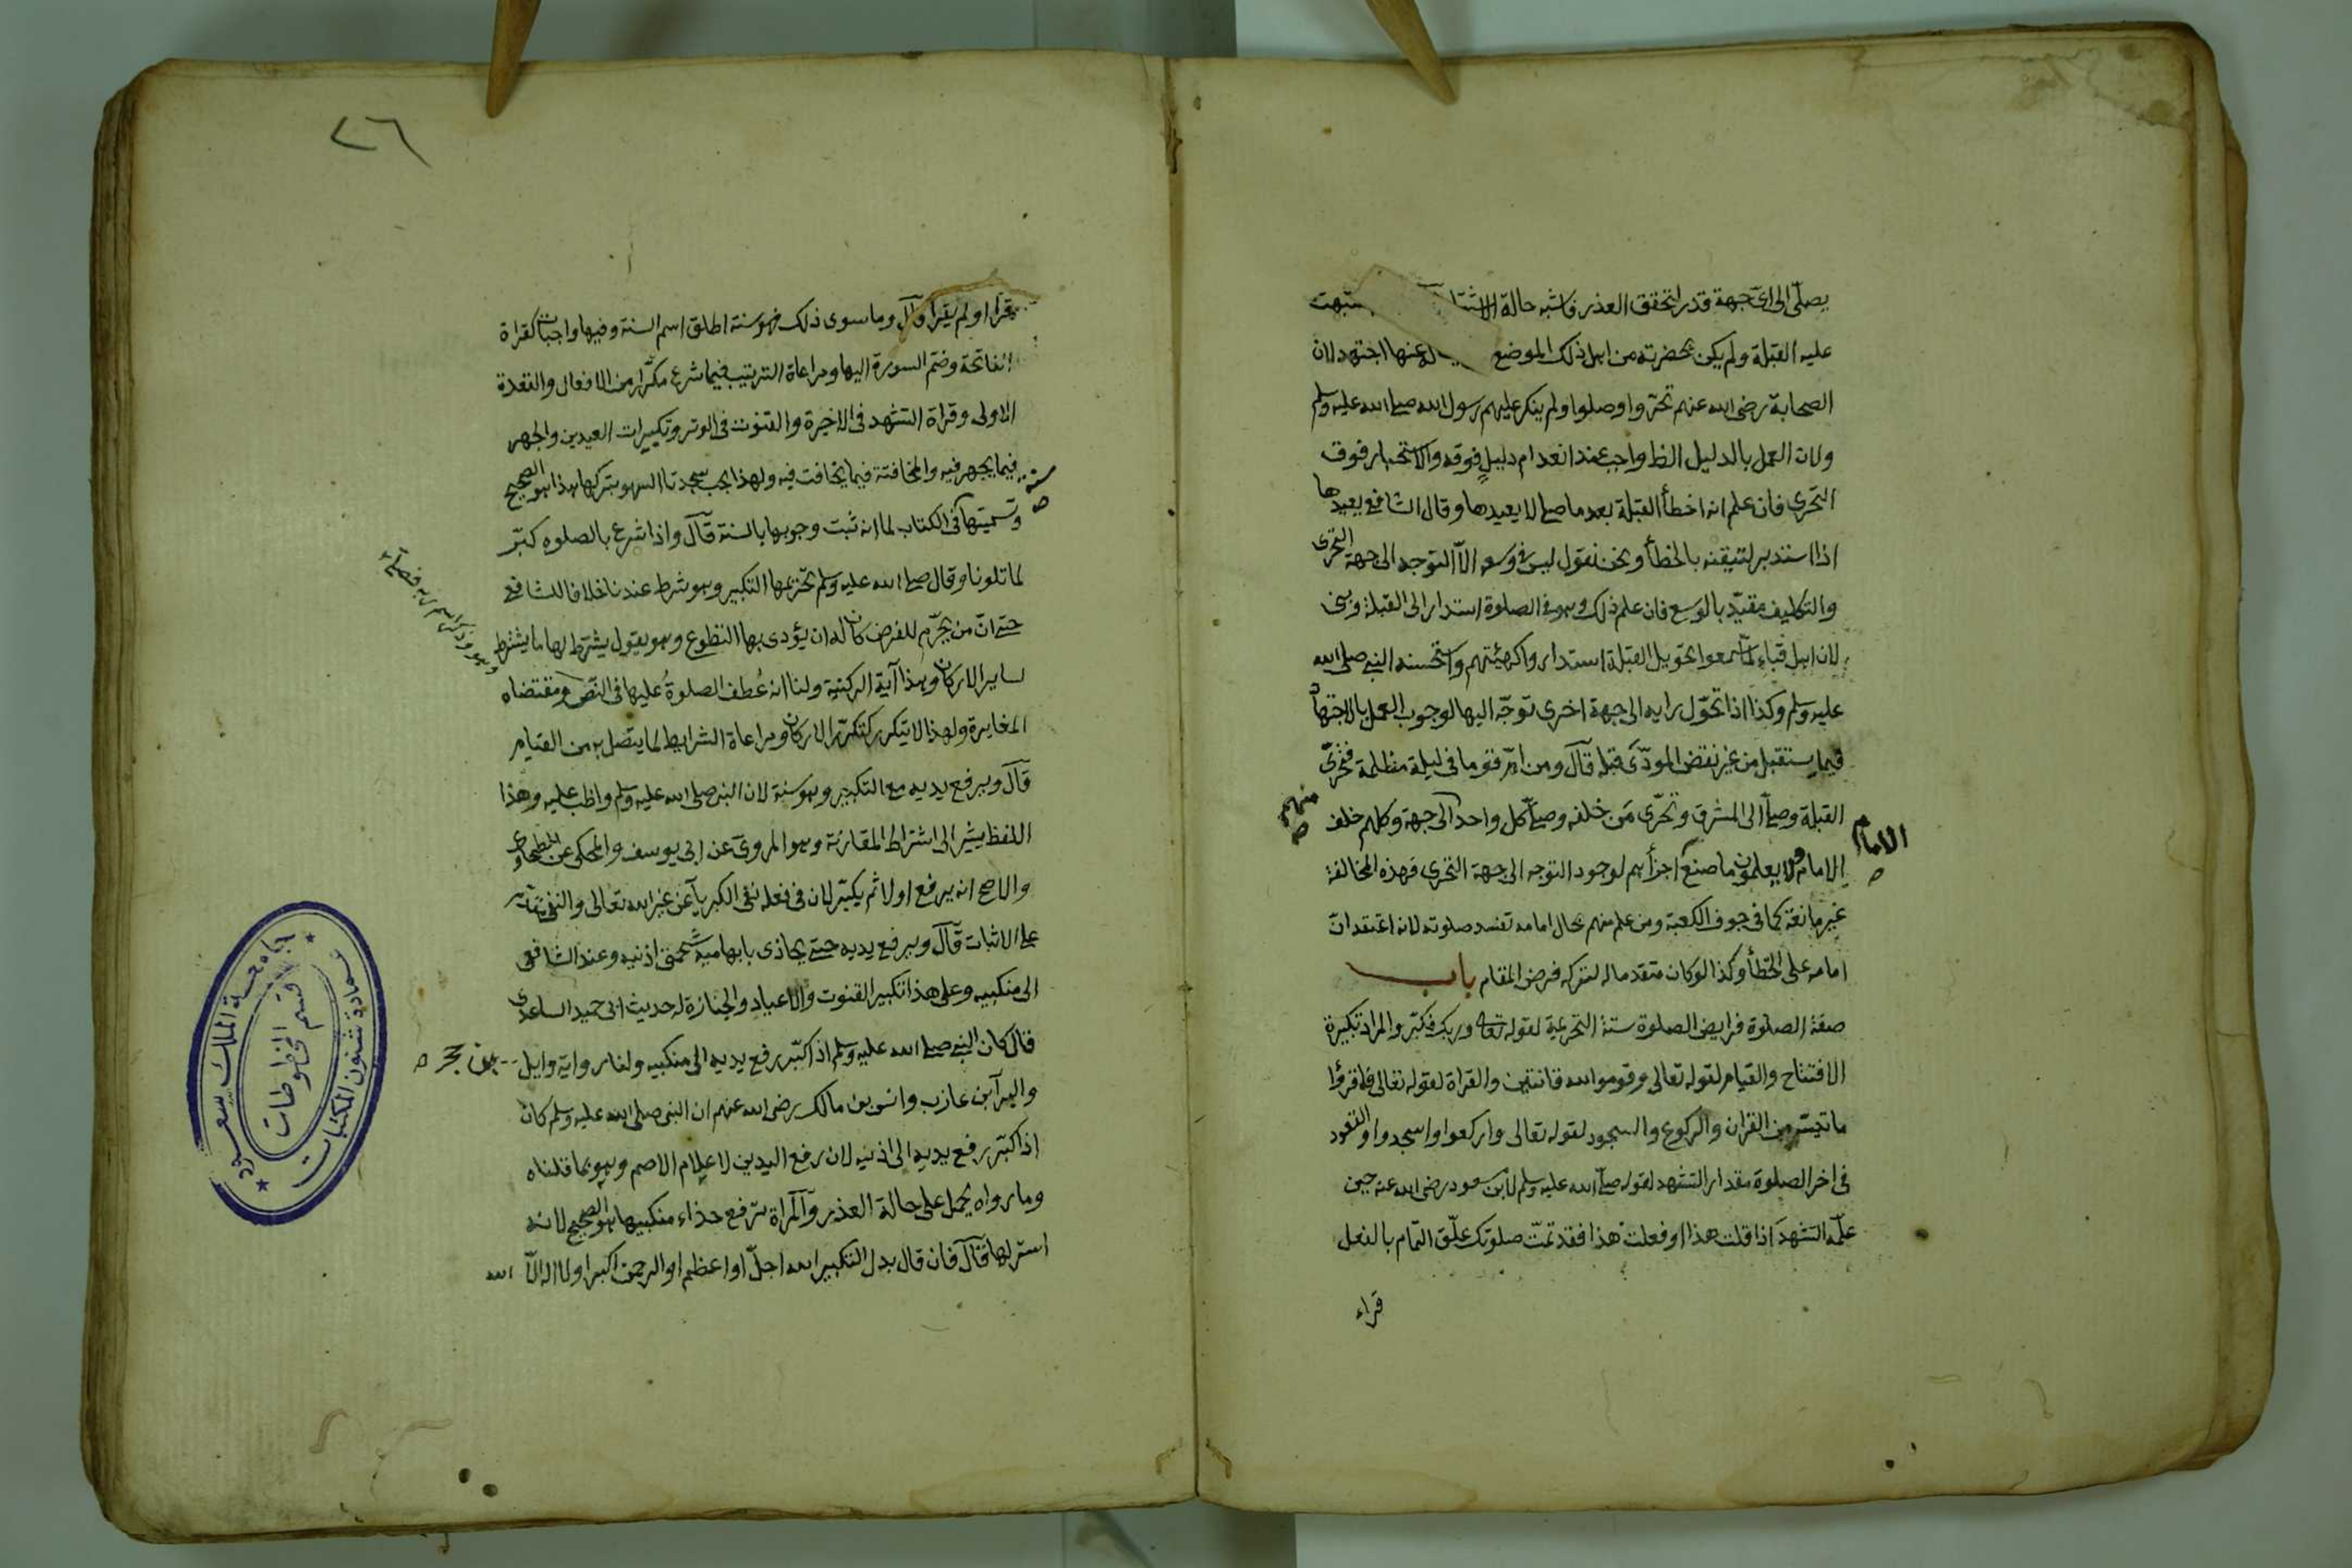 يصلى الى اى جهة قدر لتحقق العذر فاشبه حالة الاشتبا
عليه القبلة ولم يكن بحضرته من اهل ذلك الموضع عنها اجتهد لان
الصحابة رضى الله عنهم تحروا وصلوا ولم ينكر عليهم رسول الله صلى الله عليه وسلم
ولان العمل بالدليل الظ واجب عند انعدام دليل فوقه والاستخبار فوق
التحرى فان علم انه اخطأ القبلة بعد ما صلى لا يعيدها وقال الشافعى يعيدها
اذا استدبر لتيقنه بالخطأ ونحن نقول ليس فى وسعه الا التوجه الى جهة التحرى
والتكليف مقيد بالوسع فان علم ذلك وهو فى الصلوة استدار الى القبلة وبنى
لان اهل قباء لما سمعوا تحويل القبلة استداروا كهيئتهم واستحسنه النبى صلى الله
عليه وسلم وكذا اذا تحول رايه الى جهة اخرى توجه اليها لوجوب العمل بالاجتهاد
فيما يستقبل من غير نقض المودى قبله قال ومن ام قوما فى ليلة مظلمة فتحرى
القبلة وصلى الى المشرق وتحرى من خلفه وصلى كل واحد الى جهة وكلهم خلف
منهم
الامام
الامام ولا يعلمون ما صنع اجزأهم لوجود التوجه الى جهة التحرى فهذه المخالفة
غير مانعة كما فى جوف الكعبة ومن علم منهم بحال امامه تفسد صلوته لانه اعتقد ان
امامه على الخطأ وكذا لو كان متقدما له لتركه فرض المقام باب
صفة الصلوة فرايض الصلوة ستة التحريمة لقوله تعالى وربك فكبر والمراد تكبيرة
الافتتاح والقيام لقوله تعالى وقوموا لله قانتين والقراة لقوله تعالى فاقرؤا
ما تيسر من القران والركوع والسجود لقوله تعالى واركعوا واسجدوا والقعود
فى اخر الصلوة مقدار التشهد لقوله صلى الله عليه وسلم لابن مسعود رضى الله عنه حين
علمه التشهد اذا قلت هذا او فعلت هذا فقد تمت صلوتك علق التمام بالفعل
قراء
٢٦
قرا او لم يقرا قال وما سوى ذلك فهو سنة اطلق اسم السنة وفيها واجبات كقراة
الفاتحة وضم السورة اليها ومراعاة الترتيب فيما شرع مكررا من الافعال والقعدة
الاولى وقراة التشهد فى الاخيرة والقنوت فى الوتر وتكبيرات العيدين والجهر
فيما يجهر فيه والمخافتة فيما يخافت فيه ولهذا يجب سجدتا السهو بتركها هذا هو الصحيح
سنة
وتسميتها فى الكتاب لما انه ثبت وجوبها بالسنة قال واذا شرع بالصلوه كبر
لما تلونا وقال صلى الله عليه وسلم تحريمها التكبير وهو شرط عندنا خلافا للشافعى
حتى ان من يحرم للفرض كان له ان يؤدى بها التطوع وهو يقول يشترط لها ما يشترط
لساير الاركان وهذا آية الركنية ولنا انه عطف الصلوة عليها فى النص ومقتضاه
المغايرة ولهذا لا يتكرر كتكرر الاركان ومراعاة الشرايط لما يتصل به من القيام
قال ويرفع يديه مع التكبير وهو سنة لان النبى صلى الله عليه وسلم واظب عليه وهذا
اللفظ يشير الى اشتراط المقارنة وهو المروى عن ابى يوسف والمحكى عن الطحاوى
والاصح انه يرفع اولا ثم يكبر لان فى فعله نفى الكبريآء عن غير الله تعالى والنفى
على الاثبات قال ويرفع يديه حتى يحاذى بابهاميه شحمتى اذنيه وعند الشافعى
الى منكبيه وعلى هذا تكبير القنوت والاعياد والجنازة له حديث ابى حميد الساعدى
قال كان النبى صلى الله عليه وسلم اذا كبر رفع يديه الى منكبيه ولنا رواية وايل
بن حجر
والبرآ بن عازب وانس بن مالك رضى الله عنهم ان النبى صلى الله عليه وسلم كان
اذا كبر رفع يديه الى اذنيه لان رفع اليدين لاعلام الاصم وهو بما قلناه
وما رواه يحمل على حالة العذر والمراة ترفع حذاء منكبيها هو الصحيح لانه
استر لها قال فان قال بدل التكبير الله اجل او اعظم او الرحمن اكبر او لا اله الا الله
جامعة الملك سعود
عمادة شئون المكتبات
قسم المخطوطات